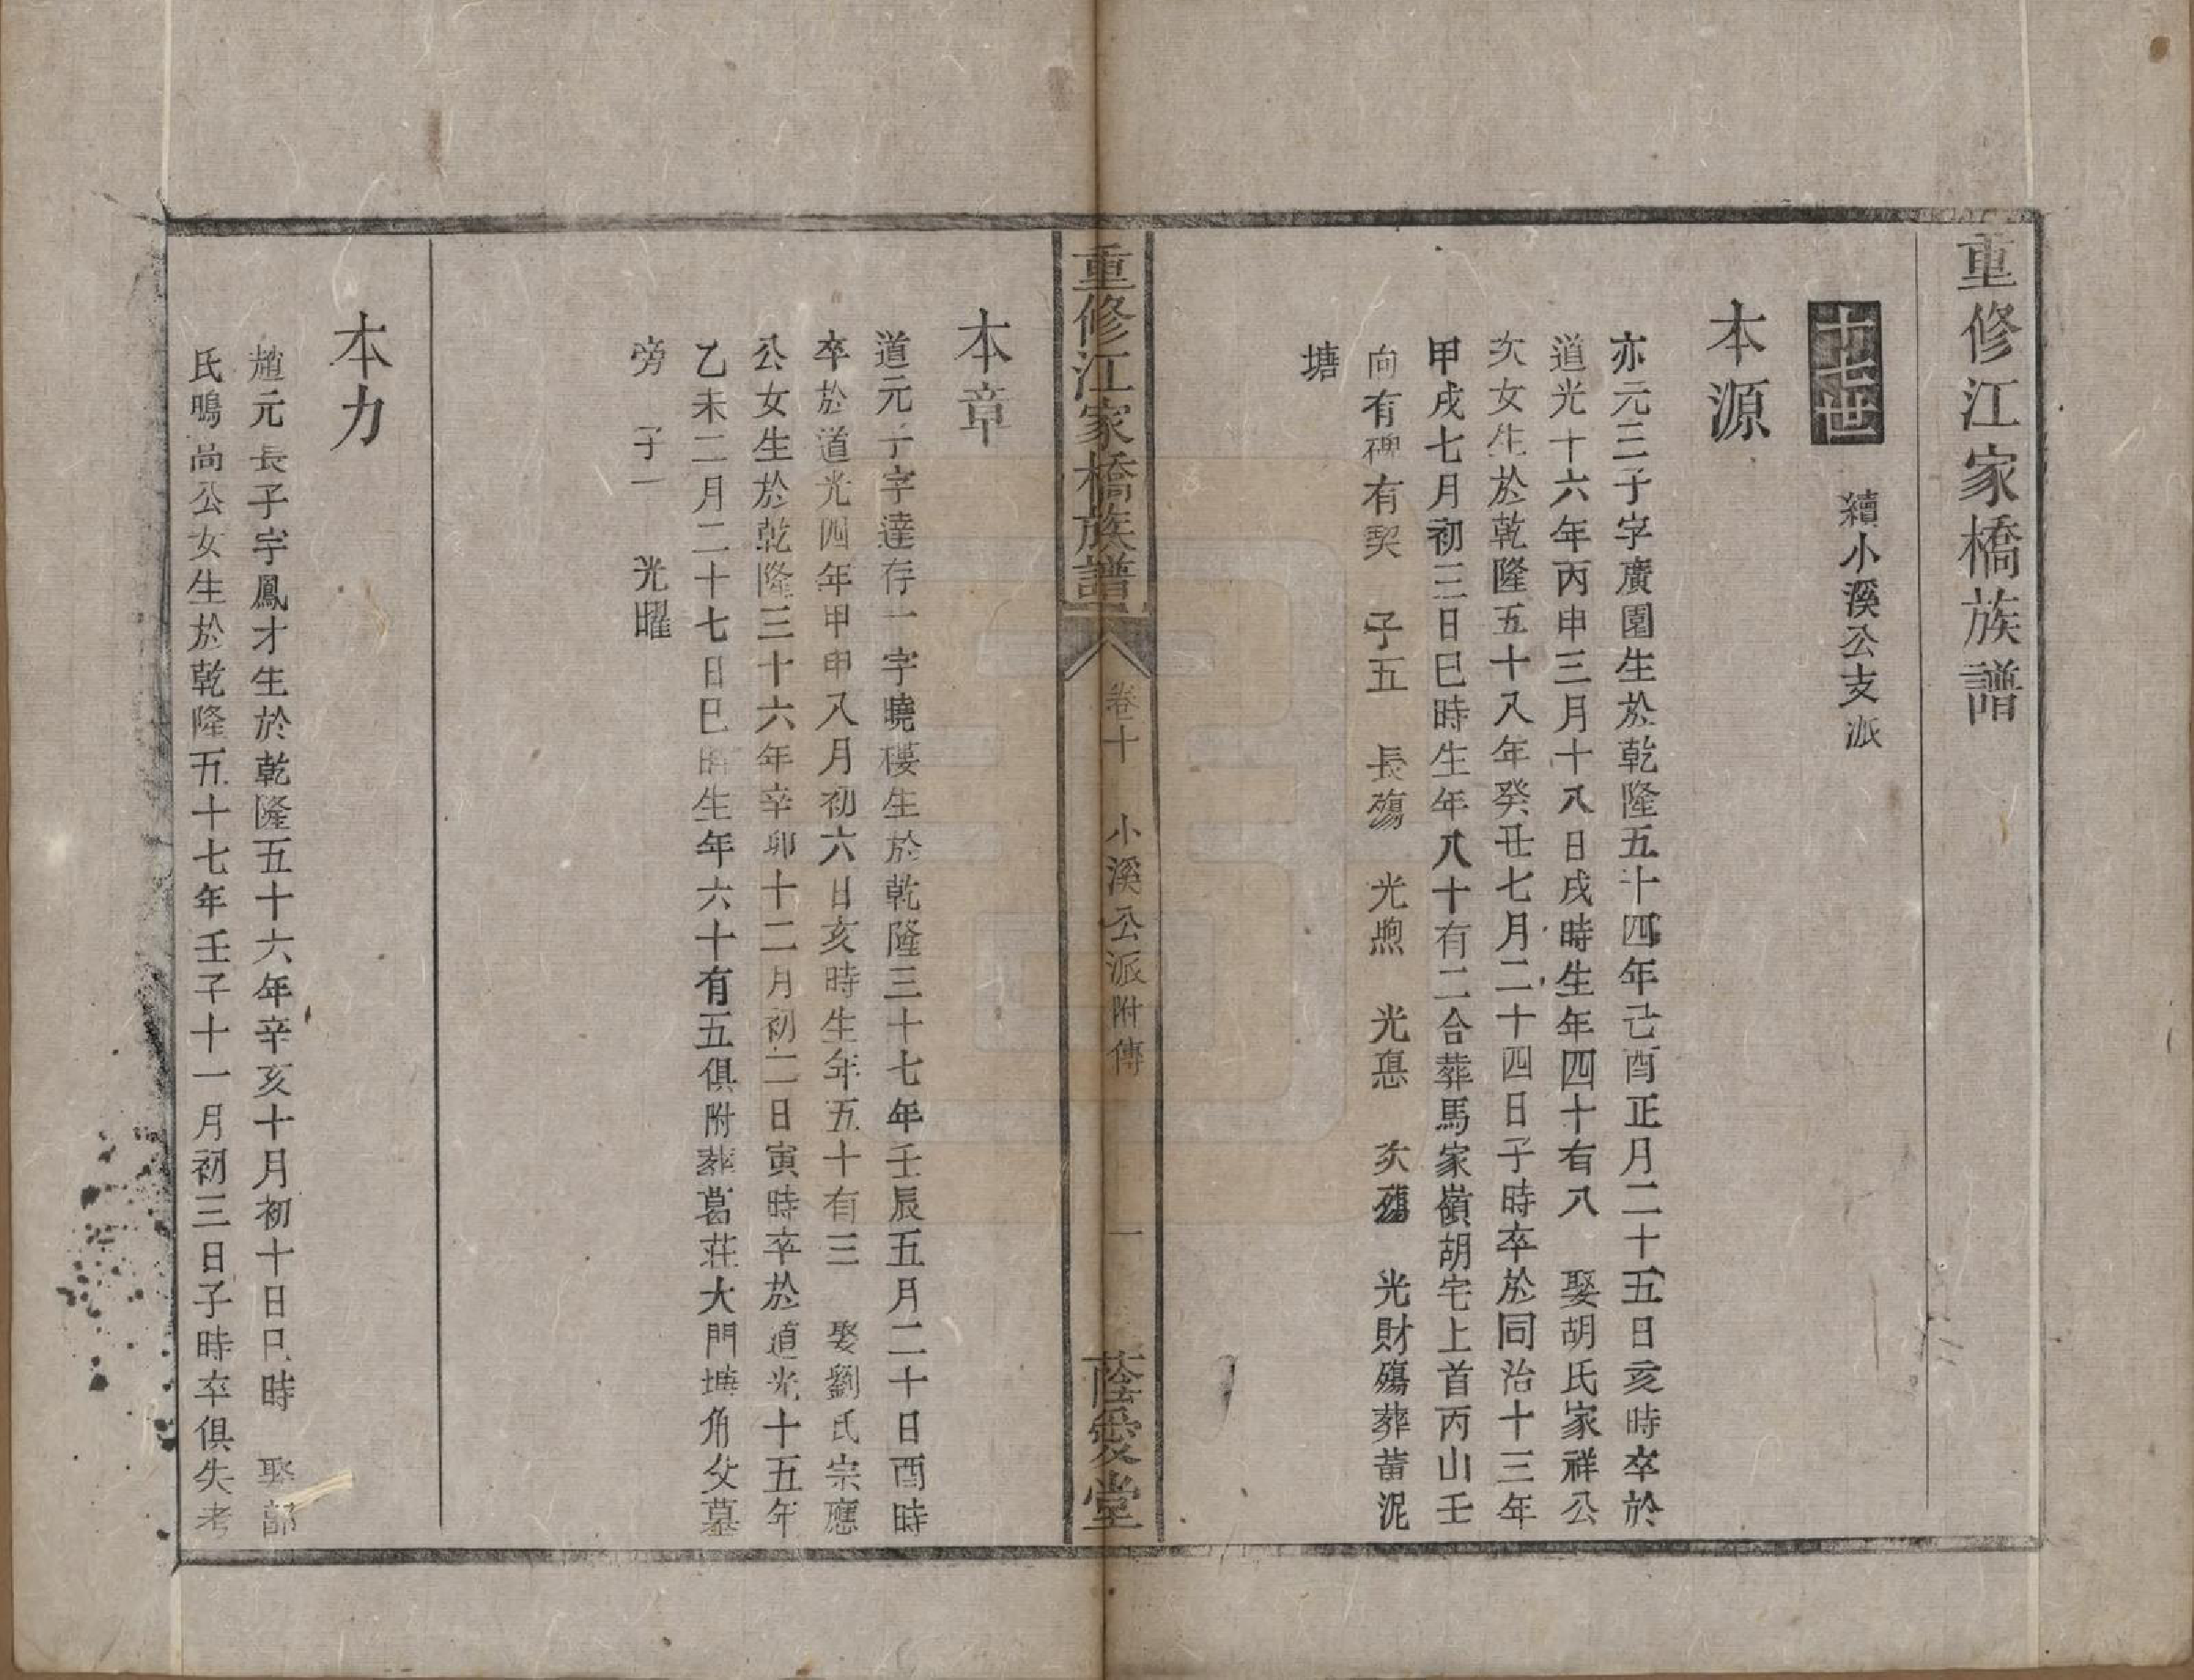 重修江家橋族譜
十七世　續小溪公支派
本源
亦元三子字廣園生於乾隆五十四年己酉正月二十五日亥時卒於
道光十六年丙申三月十八日戌時生年四十有八　娶胡氏家祥公
次女生於乾隆五十八年癸丑七月二十四日子時卒於同治十三年
甲戌七月初三日巳時生年八十有二合葬馬家嶺胡宅上首丙山壬
向有碑有契　子五　長殤　光煦　光惪　次殤　光財殤葬黃泥
塘
重修江家橋族譜　卷十　小溪公派附傳　一　蔭愛堂
本章
道元子字達存一字曉樓生於乾隆三十七年壬辰五月二十日酉時
卒於道光四年甲申八月初六日亥時生年五十有三　娶劉氏宗應
公女生於乾隆三十六年辛卯十二月初二日寅時卒於道光十五年
乙未二月二十七日巳時生年六十有五俱附葬葛莊大門塘角父墓
旁　子一　光曜
本力
趙元長子字鳳才生於乾隆五十六年辛亥十月初十日巳時　娶部
氏鳴尚公女生於乾隆五十七年壬子十一月初三日子時卒俱失考